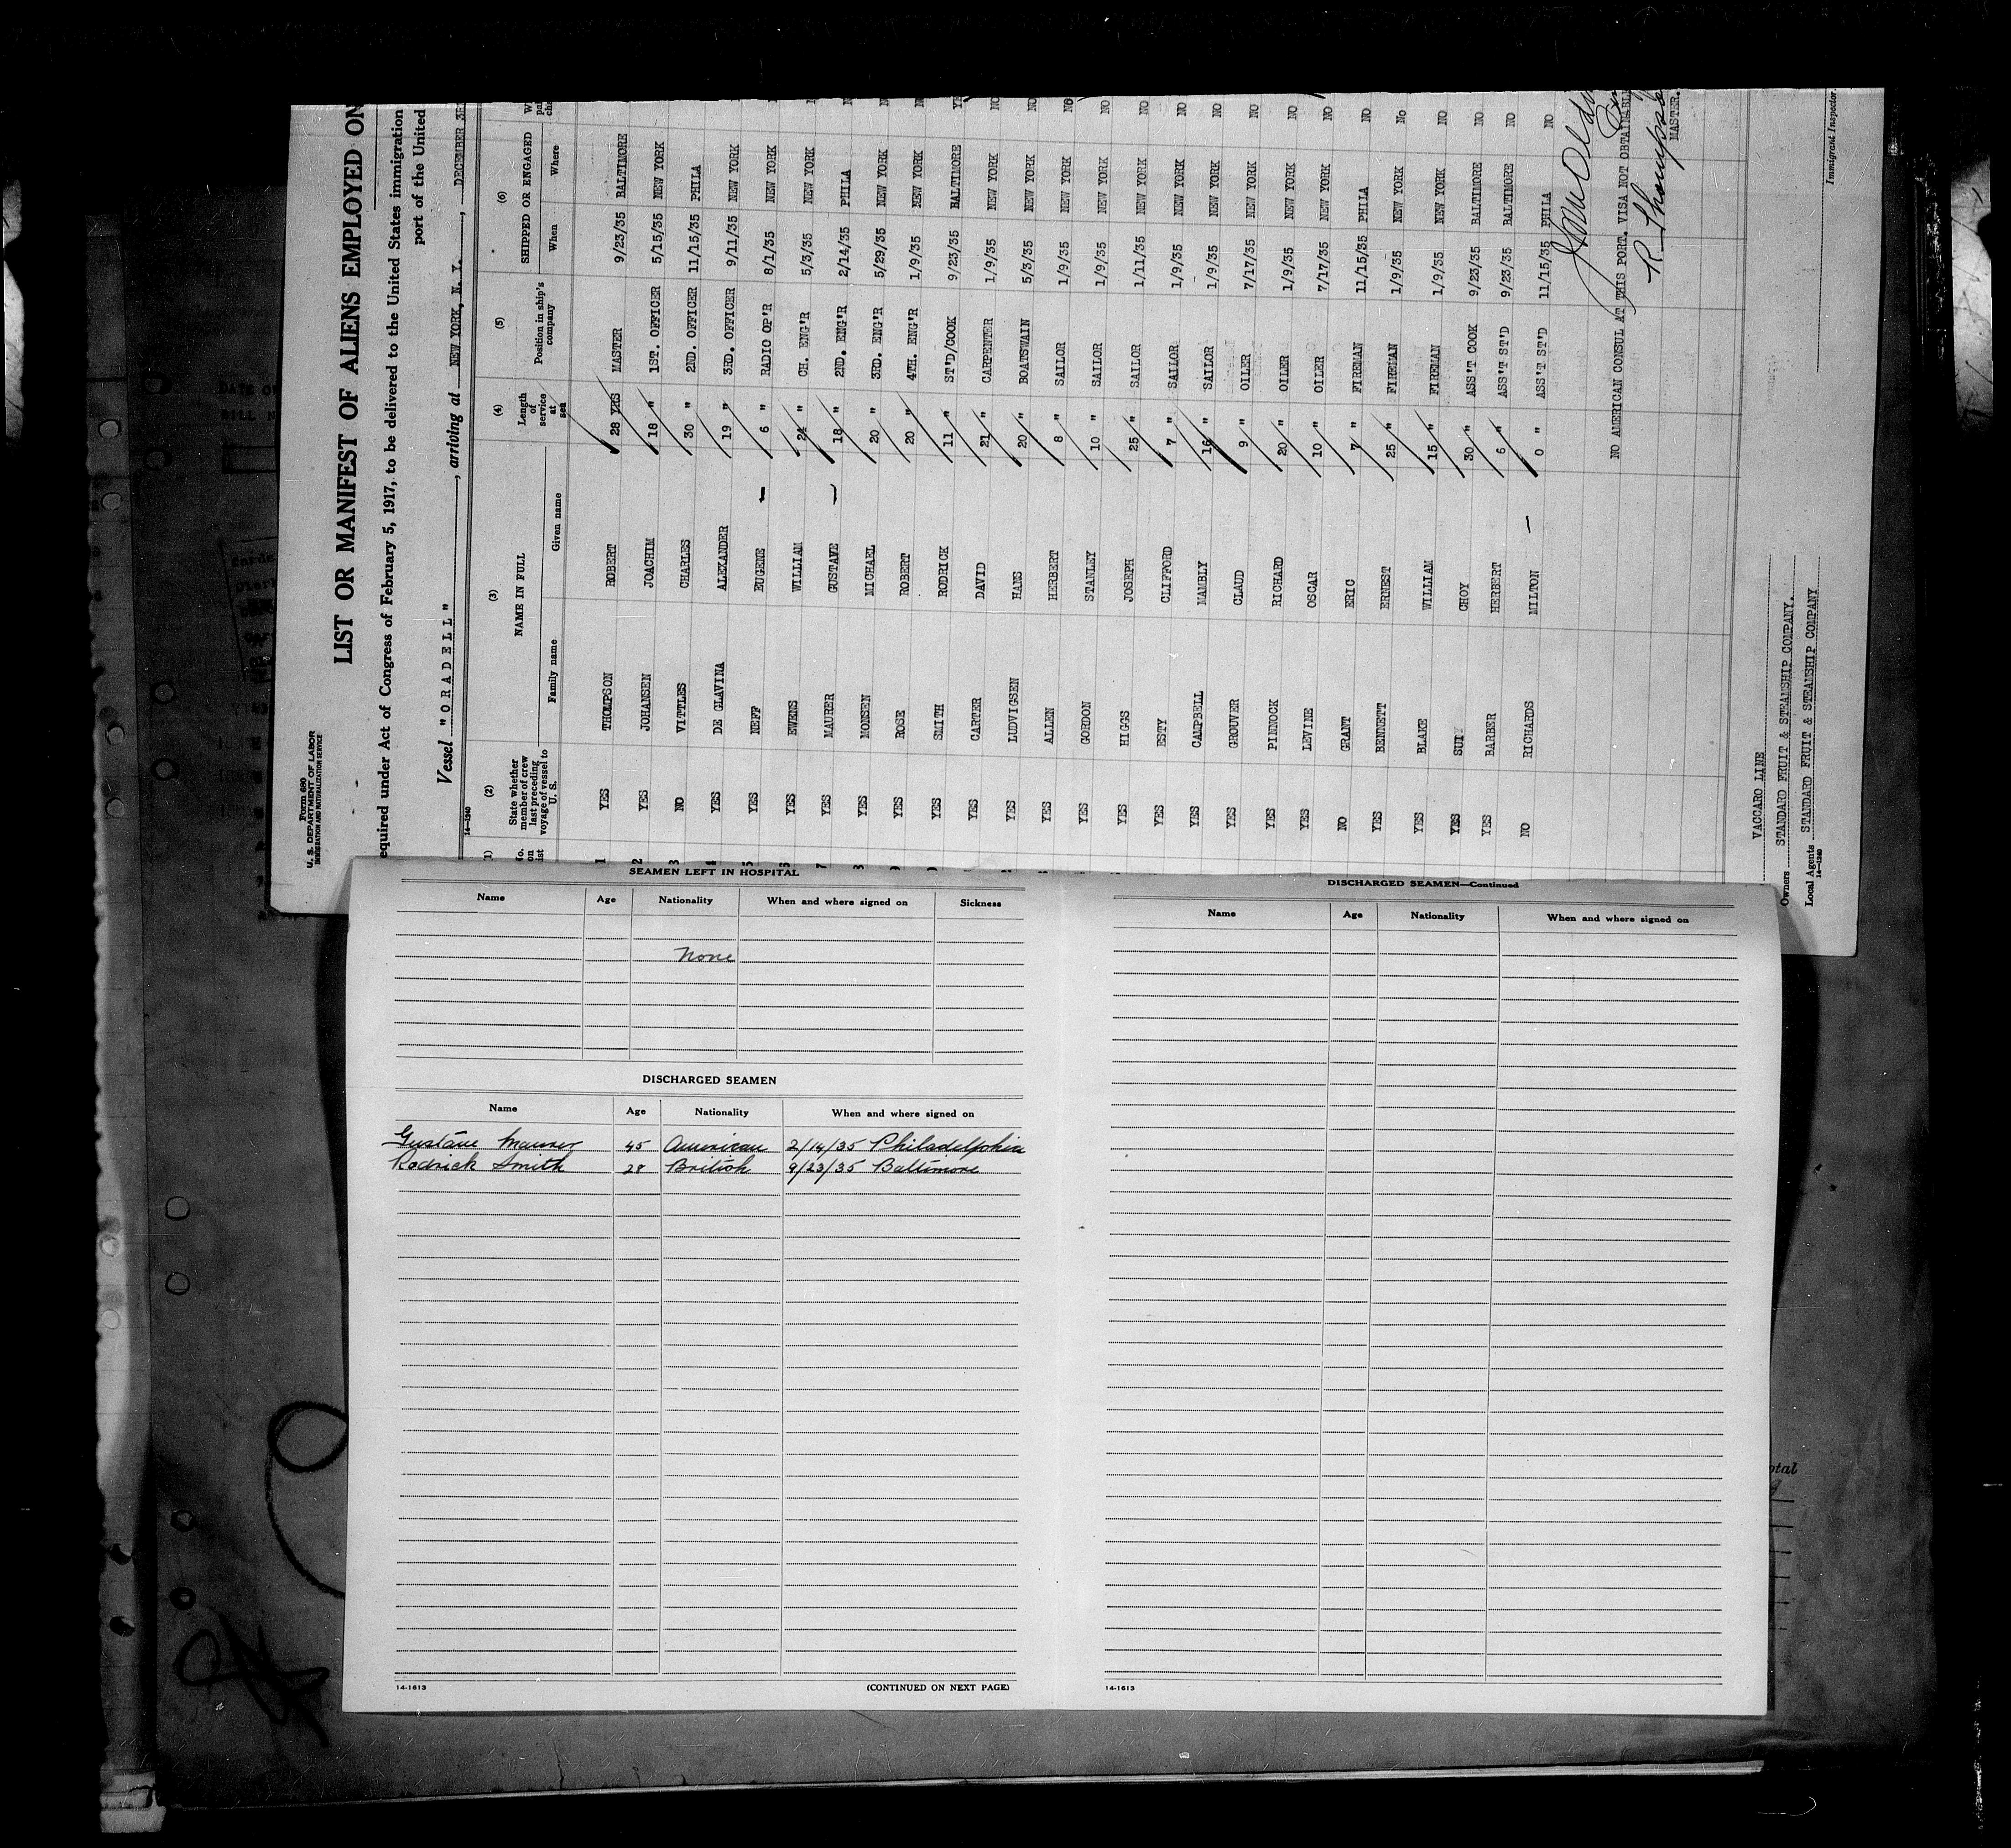 Form 680
U. S. DEPARTMENT OF LABOR
IMMIGRATION AND NATURALIZATION SERVICE
LIST OR MANIFEST OF ALIENS EMPLOYED ON
equired under Act of Congress of February 5, 1917, to be delivered to the United States immigration
port of the United
Vessel "ORADELL", arriving at NEW YORK, N. Y., DECEMBER
14-1240
(2) (3) (4) (5) (6)
State whether member of crew on last preceding voyage of vessel to U. S. NAME IN FULL Length of service at sea Position in ship's company SHIPPED OR ENGAGED
Family name Given name When Where
1 YES THOMPSON ROBERT 28 YRS MASTER 9/23/35 BALTIMORE
2 YES JOHANSEN JOACHIM 18 " 1ST. OFFICER 5/15/35 NEW YORK
3 NO VITTLES CHARLES 30 " 2ND. OFFICER 11/15/35 PHILA
4 YES DE GLAVINA ALEXANDER 19 " 3RD. OFFICER 9/11/35 NEW YORK
5 YES NEFF EUGENE 6 " RADIO OP'R 8/1/35 NEW YORK
YES EWENS WILLIAM 24 " CH. ENG'R 5/3/35 NEW YORK
7 YES MAURER GUSTAVE 18 " 2ND. ENG'R 2/14/35 PHILA
YES MONSEN MICHAEL 20 " 3RD. ENG'R 5/29/35 NEW YORK
YES ROSE ROBERT 20 " 4TH. ENG'R 1/9/35 NEW YORK
YES SMITH RODRICK 11 " ST'D/COOK 9/23/35 BALTIMORE YE
YES CARTER DAVID 21 " CARPENTER 1/9/35 NEW YORK NO
YES LUDVIGSEN HANS 20 " BOATSWAIN 5/3/35 NEW YORK NO
YES ALLEN HERBERT 8 " SAILOR 1/9/35 NEW YORK NO
YES GORDON STANLEY 10 " SAILOR 1/9/35 NEW YORK NO
YES HIGGS JOSEPH 25 " SAILOR 1/11/35 NEW YORK NO
YES ESTY CLIFFORD 7 " SAILOR 1/9/35 NEW YORK NO
YES CAMPBELL MANBLY 16 " SAILOR 1/9/35 NEW YORK NO
YES GROUVER CLAUD 9 " OILER 7/17/35 NEW YORK NO
YES PINNOCK RICHARD 20 " OILER 1/9/35 NEW YORK NO
YES LEVINE OSCAR 10 " OILER 7/17/35 NEW YORK NO
NO GRANT ERIC 7 " FIREMAN 11/15/35 PHILA NO
YES BENNETT ERNEST 25 " FIREMAN 1/9/35 NEW YORK No
YES BLAKE WILLIAM 15 " FIREMAN 1/9/35 NEW YORK NO
YES SUI CHOY 30 " ASS'T COOK 9/23/35 BALTIMORE NO
YES BARBER HERBERT 6 " ASS'T ST'D 9/23/35 BALTIMORE NO
NO RICHARDS MILTON 0 " ASS'T ST'D 11/15/35 PHILA NO
NO AMERICAN CONSUL AT THIS PORT. VISA NOT OBTAINABLE
R Thompson
MASTER.
VACCARO LINE
Owners STANDARD FRUIT & STEAMSHIP COMPANY.
Local Agents STANDARD FRUIT & STEAMSHIP COMPANY
14-1240
Immigrant Inspector
SEAMEN LEFT IN HOSPITAL
Name Age Nationality When and where signed on Sickness
None
DISCHARGED SEAMEN
Name Age Nationality When and where signed on
Gustave Maurer 45 American 2/14/35 Philadelphia
Rodrick Smith 28 British 9/23/35 Baltimore
14-1613 (CONTINUED ON NEXT PAGE)
DISCHARGED SEAMEN—Continued
Name Age Nationality When and where signed on
14-1613